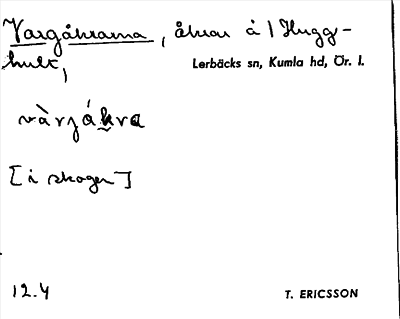 Vargåkrarna, åkrar å / Hugg-
hult,
Lerbäcks sn, Kumla hd, Ör. l.
vàrjákra
[i skogen]
12.4
T. ERICSSON